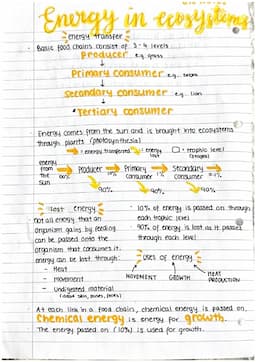 Energy in ecosystems
energy transfer
Basic food chains consist of 3-4 levels
Producer e.g. grass
↓
Primary consumer e.g.
↓
secondary consumer e.g. lion
↓
Tertiary consumer
Energy comes from the sun and is brought into ecosystems
through plants (photosynthesis)
→ : energy transferred ↓ : energy lost □ : trophic level (stages)
energy from the sun → Producer → Primary consumer → Secondary consumer →
10% 1% 0.1%
90% 90% 90%
lost energy
not all energy that an
organism gains by feeding
can be passed onto the
organism that consumes it.
energy can be lost through:
- Heat
- Movement
- Undigested material
- 10% of energy is passed on through
each trophic level
- 90% of energy is lost as it passes
through each level
uses of energy
MOVEMENT GROWTH HEAT PRODUCTION
At each link in a food chain, chemical energy is passed on.
Chemical energy is energy for growth.
The energy passed on (10%) is used for growth.